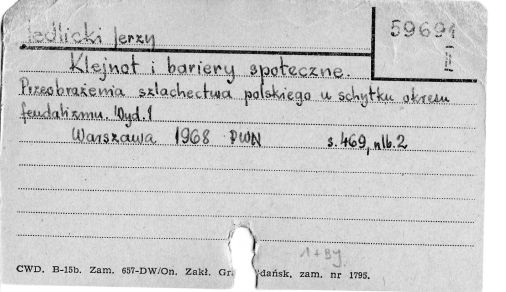 Jedlicki Jerzy
59691
II
Klejnot i bariery społeczne.
Przeobrażenia szlachectwa polskiego u schyłku okresu
feudalizmu. Wyd. 1
Warszawa 1968 PWN s. 469, nlb. 2
1+BJ
CWD. B-15b. Zam. 657-DW/On. Zakł. Gr dańsk, zam. nr 1795.